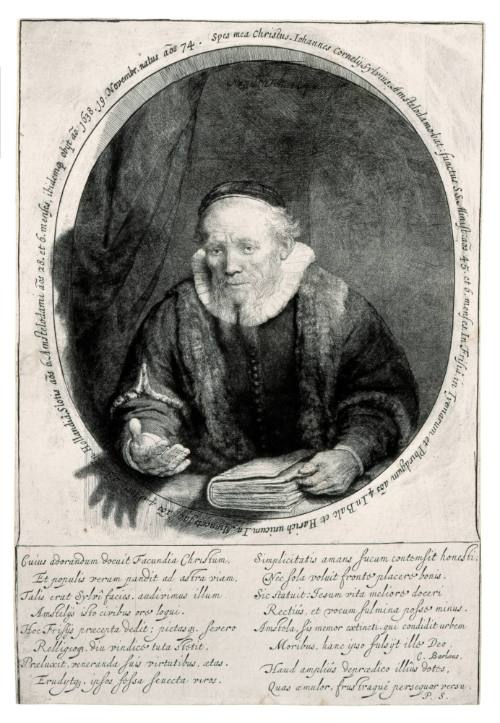 Spes mea Christus. Johannes Cornelij Sylvius, Amstelodamobat. functus S.S. Minist. aõs 45. et 6. menses. In Frisia in Tyemarum et Phirdgum aõs 4. In Balk et Harich unicum. In Minnertsga aõs 4. Slotis aõs 6. Amstelodami aõs 28. et 6. menses, ibidemq. obijt aõ. 1638. 19 Novembr. natus aõs 74.
Cuius adorandum docuit Facundia Christum,
Et populis veram pandit ad astra viam,
Talis erat Sylvî facies. audivimus illum
Amstelijs isto civibus ore loqui.
Hoc Frisijs præcepta dedit; pietasq. severo
Relligioq. diu vindice tuta stetit.
Præluxit, veneranda suis virtutibus, ætas.
Erudijtq. ipsos fessa senecta viros.
Simplicitatis amans fucum contemsit honesti,
Nec sola voluit fronte placere bonis.
Sic statuit: Jesum vita meliore doceri
Rectius, et vocum fulmina posse minus.
Amstela, sis memor extincti. qui condidit urbem
Moribus, hanc ipso fulsijt ille Deo.
C. Barlæus.
Haud amplius deprædico illius dotes,
Quas æmulor, frustraque persequor versu.
P. S.